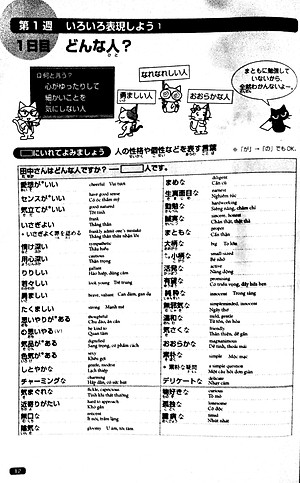 第1週 いろいろ表現しよう 1
1日目 どんな人？
何と言う？
心がゆったりして
細かいことを
気にしない人
なれなれしい人
勇ましい人
おおらかな人
まともに勉強して
いないから、
全然わかんないよー。
にいれてよみましょう 人の性格や個性などを表す言葉
※「が」→「の」でもOK。
田中さんはどんな人ですか？ 人です。
愛想が*いい cheerful Vui tươi
センスが*いい have good sense Có óc thẩm mỹ
気立てが*いい good natured Tốt tính
いさぎよい frank Thẳng thắn
*いさぎよく罪を認める frankly admit one's mistake Thẳng thắn thừa nhận lỗi
情け深い sympathetic Thấu hiểu
用心深い cautious Thận trọng
りりしい gallant
若々しい look young Trẻ trung
勇ましい brave, valiant Can đảm, gan dạ
たくましい strong Mạnh mẽ
思いやりが*ある thoughtful Chu đáo, ân cần
思いやる(v) be kind to Quan tâm
気品が*ある dignified Sang trọng, có phẩm cách
色気が*ある sexy Khêu gợi
しとやかな graceful, modest Lịch thiệp
チャーミングな charming Hấp dẫn, có sức hút
気まぐれな fickle, capricious Tính khí thất thường
近寄りがたい hard to approach Khó gần
無口な reticent Ít nói, trầm lặng
陰気な gloomy U ám, tối tăm
まめな diligent Cần cù
生真面目な earnest Nghiêm túc
勤勉な hardworking Siêng năng, chăm chỉ
誠実な sincere, honest Chân thật, thật thà
まともな proper Cẩn thận
大柄な big To lớn
小柄な small-sized Bé nhỏ
活発な active Năng động
有望な promising Có triển vọng, đầy hứa hẹn
純粋な innocent Trong sáng
無邪気な simpleminded, innocent Ngây thơ
温和な mild, gentle Từ tốn, ôn hòa
気さくな friendly Thân thiện, dễ gần
おおらかな magnanimous Dễ tính, thoải mái
素朴な simple Mộc mạc
*素朴な疑問 a simple question Một câu hỏi đơn giản
デリケートな delicate Nhạy cảm
物好きな curious Tò mò
孤独な lonesome Cô độc
臆病な timid Nhút nhát
12